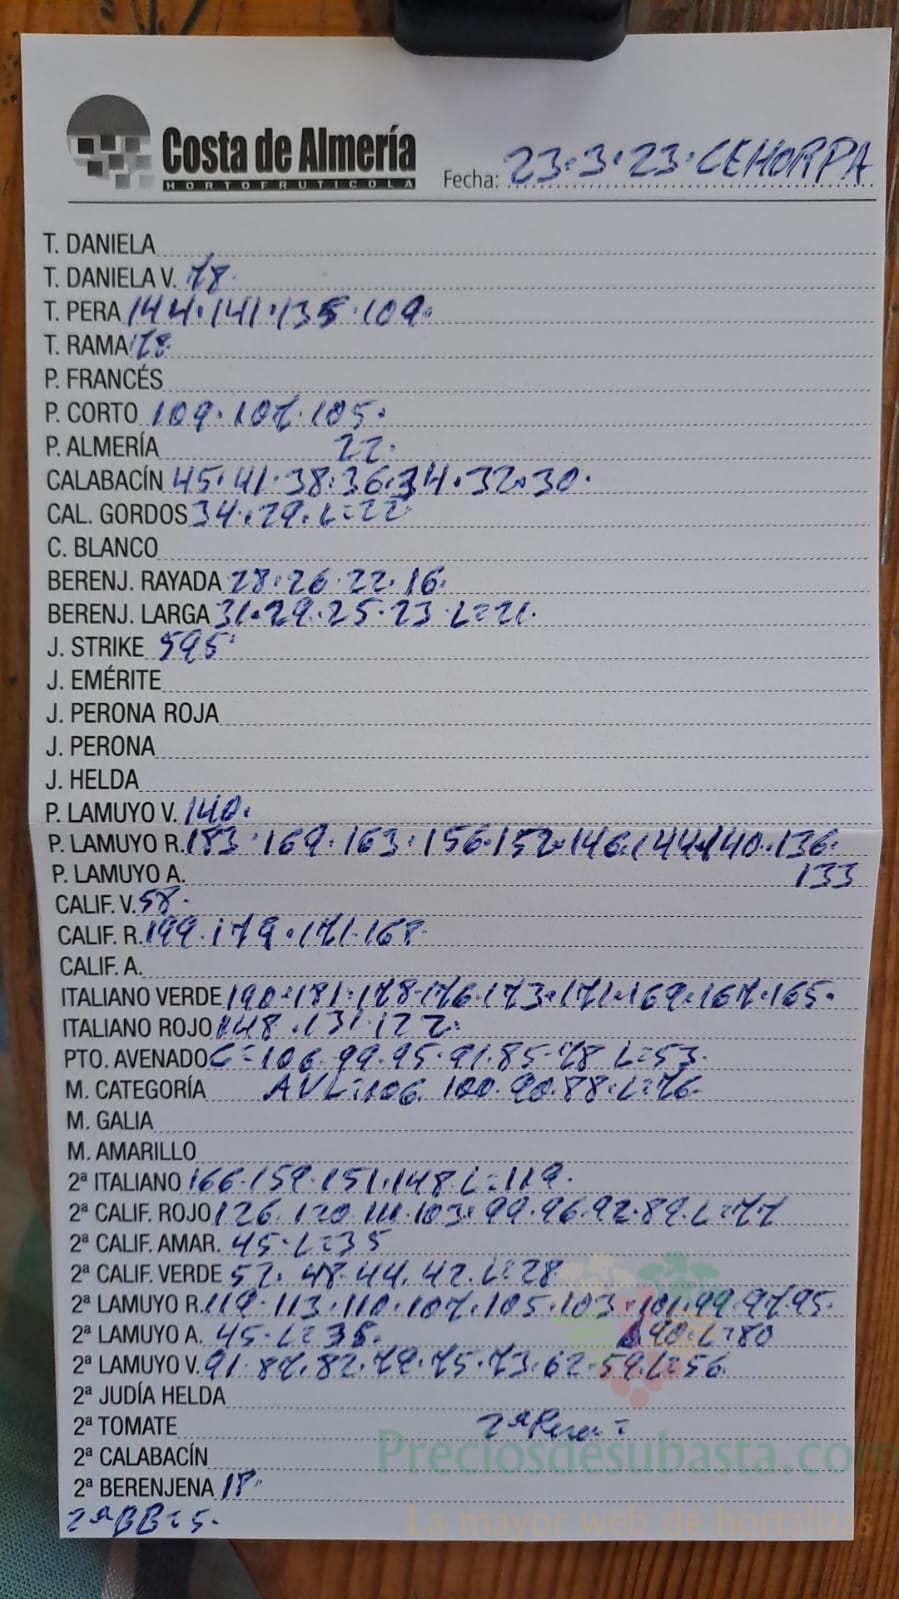 Costa de Almería
HORTOFRUTICOLA
Fecha: 23.3.23.CEHORPA
T. DANELA
T. DANIELA V. 78.
T. PERA 144.141.135.109.
T. RAMA 78.
P. FRANCÉS
P. CORTO 109.107.105.
P. ALMERÍA 22.
CALABACÍN 45.41.38.36.34.32.30.
CAL. GORDOS 34.29.L=22
C. BLANCO
BERENJ. RAYADA 28.26.22.16.
BERENJ. LARGA 31.29.25.23 L=21.
J. STRIKE 595.
J. EMÉRITE
J. PERONA ROJA
J. PERONA
J. HELDA
P. LAMUYO V. 140.
P. LAMUYO R. 183.169.163.156.152.146.144.140.136.
P. LAMUYO A. 133
CALIF. V. 58.
CALIF. R. 199.179.171.168.
CALIF. A.
ITALIANO VERDE 190.181.178.176.173.171.169.167.165.
ITALIANO ROJO 148.131.122.
PTO. AVENADO G=106.99.95.91.85.78 L=53.
M. CATEGORÍA AVL=106.100.90.88.L=76.
M. GALIA
M. AMARILLO
2ª ITALIANO 166.159.151.148.L=119.
2ª CALIF. ROJO 126.120.111.103.99.96.92.89.L=77
2ª CALIF. AMAR. 45.L=35
2ª CALIF. VERDE 52.48.44.42.L=28
2ª LAMUYO R. 119.113.110.107.105.103.101.99.97.95.
2ª LAMUYO A. 45.L=35. 90.L=80
2ª LAMUYO V. 91.87.82.79.75.73.62.59.L=56
2ª JUDÍA HELDA
2ª TOMATE 2ª Pera =
Preciosdesubasta.com
2ª CALABACÍN
2ª BERENJENA 18.
La mayor web de hortalizas
2ª BB=5.